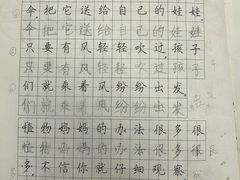 伞,把它送给自己的娃娃
伞,把它送给自己的娃娃
只要有风轻轻吹过,孩子
只要有风轻轻吹过,孩子
们就乘着风纷纷出发。
们就乘着风纷纷出发
植物妈妈的办法很多很
植物妈妈的办法很多很
多,不信你就仔细观察